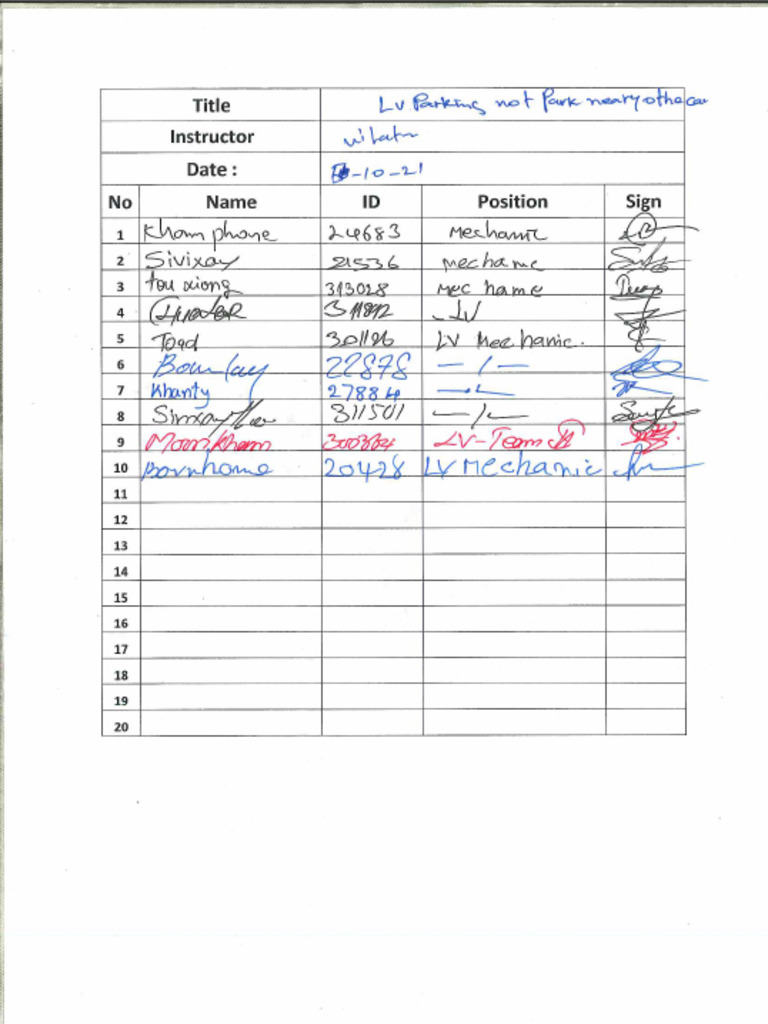 Title Lv Parking not Park neary othe car
Instructor
Date : -10-21
No Name ID Position Sign
1 Kham phone 24683 Mechanic
2 Sivixay 21536 mechanic
3 tou xiong 313028 Mechanic
4 311892 LV
5 Toad 301126 LV Mechanic.
6 Bounlay 22878 — / —
7 Khanty 27884
8 311501 — / —
9 Mounkham LV-Team
10 Bounhome 20428 LV Mechanic
11
12
13
14
15
16
17
18
19
20